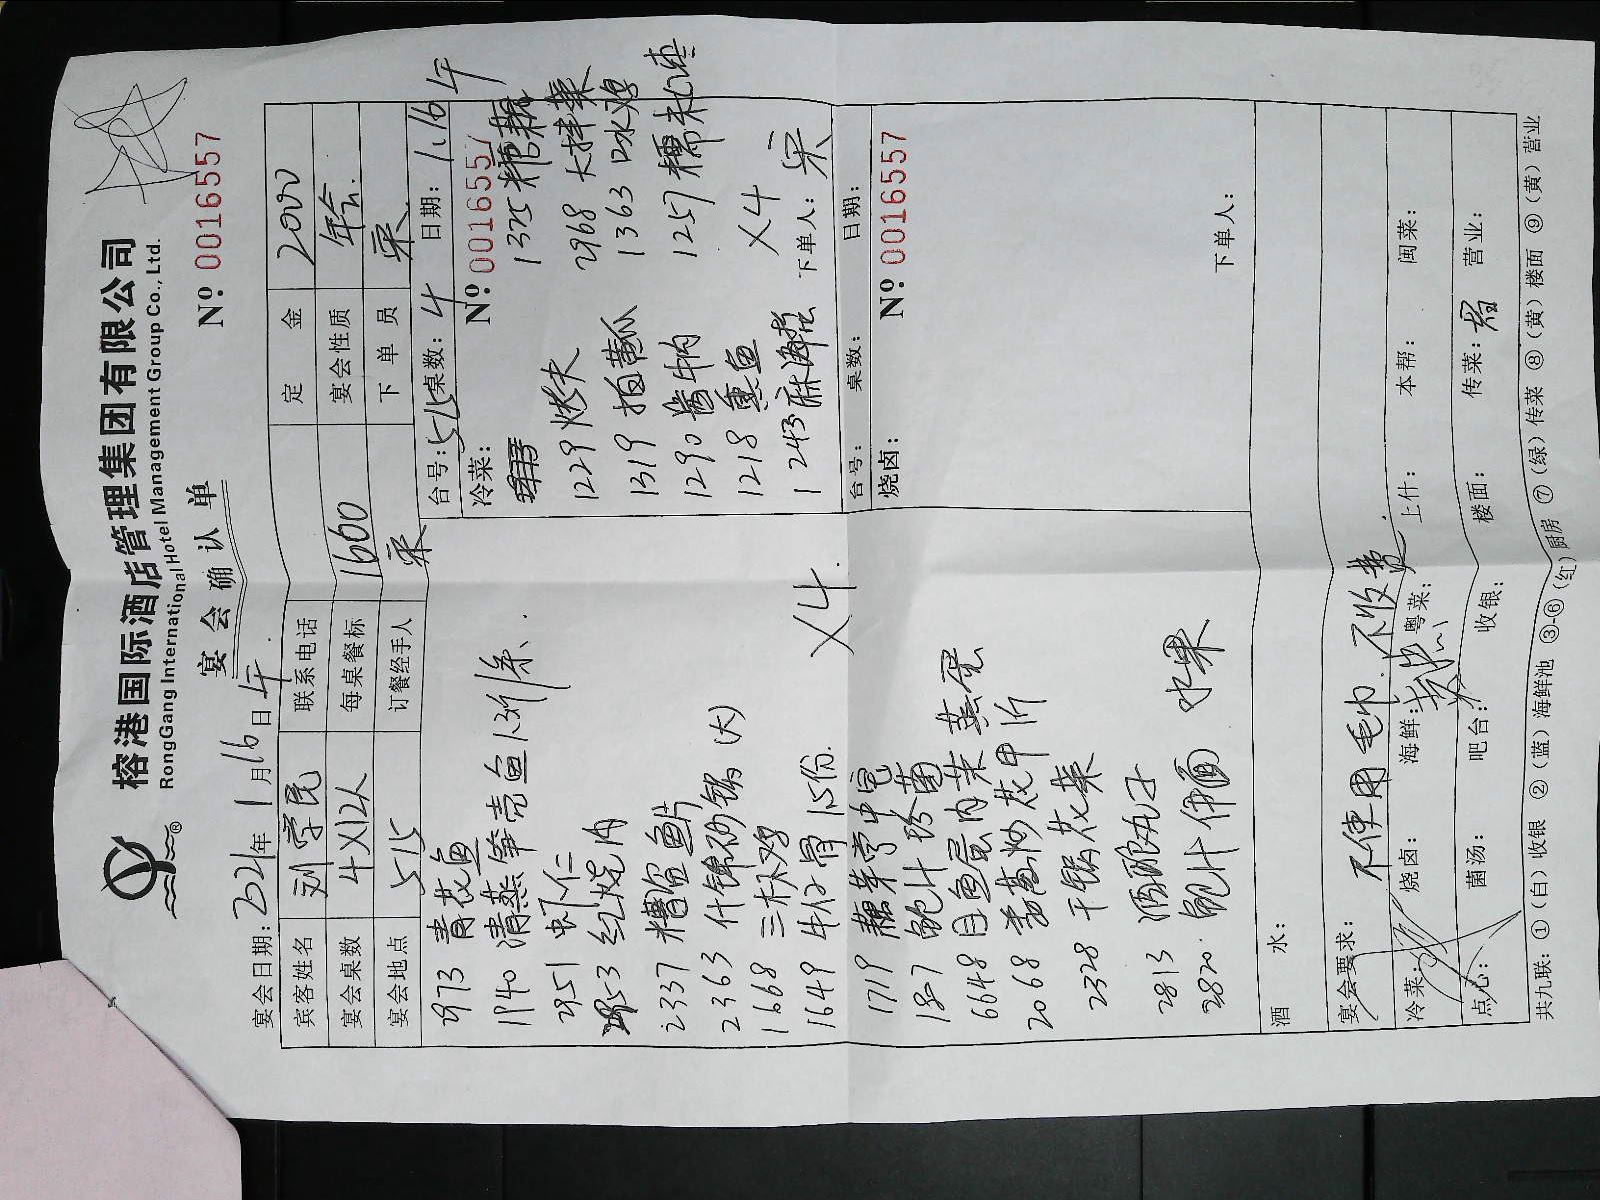 榕港国际酒店管理集团有限公司
RongGang International Hotel Management Group Co., Ltd.
宴会确认单
宴会日期: 2021年1月16日午
Nº 0016557
宾客姓名 刘学民 联系电话 定金 2000
宴会桌数 4×12人 每桌餐标 1600 宴会性质 年会
宴会地点 515 订餐经手人 宋 下单员 宋
2973 青花鱼
1940 清蒸笋壳鱼1.3斤/条.
2951 虾仁
2953 红烧肉
2337 糟溜鱼片
2363 什锦砂锅(大)
1668 三杯鸡
1649 牛仔骨15份.
1719
1827 鲍汁珍菌
6648 目鱼蛋肉末蒸蛋
2068 姜葱炒花甲
2328 干锅花菜
2813 酒酿丸子
2820. 鲍汁伊面 水果
×4.
台号: 515 桌数: 4 日期: 1.16午
冷菜:
Nº 0016557
1325
1229 烤夫 2968 大拌菜
1319 拍黄瓜 1363 口水鸡
1290 酱牛肉 1257 糯米红枣
1218 熏鱼 ×4
1243 麻海蜇 下单人: 宋
台号: 桌数: 日期:
烧卤:
Nº 0016557
下单人:
酒水:
宴会要求: 不使用毛巾.不收费.
冷菜: 烧卤: 海鲜: 粤菜: 上什: 本帮: 闽菜:
点心: 菌汤: 吧台: 收银: 楼面: 传菜: 营业:
共九联: ①(白)收银 ②(蓝)海鲜池 ③-⑥(红)厨房 ⑦(绿)传菜 ⑧(黄)楼面 ⑨(黄)营业